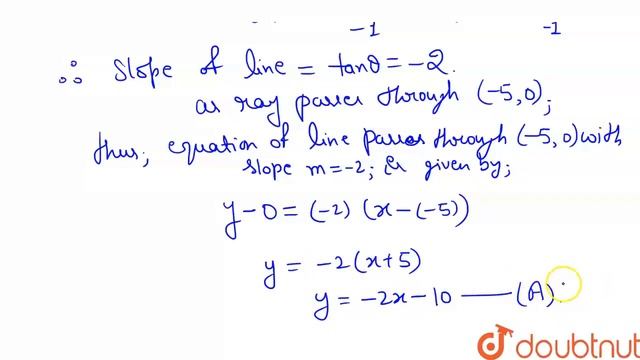 -1 -1
∴ Slope of line = tanθ = -2.
as ray passes through (-5,0);
thus; equation of line passes through (-5,0) with
slope m=-2; is given by;
y-0 = (-2) (x-(-5))
y = -2(x+5)
y = -2x-10 —— (A).
doubtnut